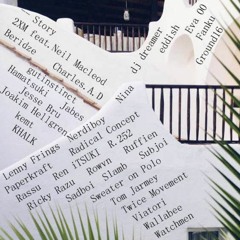 Story
2XM feat.Neil Macleod
Beridze Charles.A.D
gutInstinct
Hamatsuki Jabes
Jesse Bru
Joakim Hellgren
kemt
KHALK
Nina
dj dreamer
eddish
Eva 00
Fanku
Ground16
Lenny Frings Nerdiboy
Paperkraft Radical Concept
Rassu Ren iTSUKI R.252
Ricky Razu Rowvn Ruffien
Sadhoi Slamb Subjoi
Sweater on Polo
Tom Jarmey
Twice Movement
Viatori
Wallabee
Watchmen